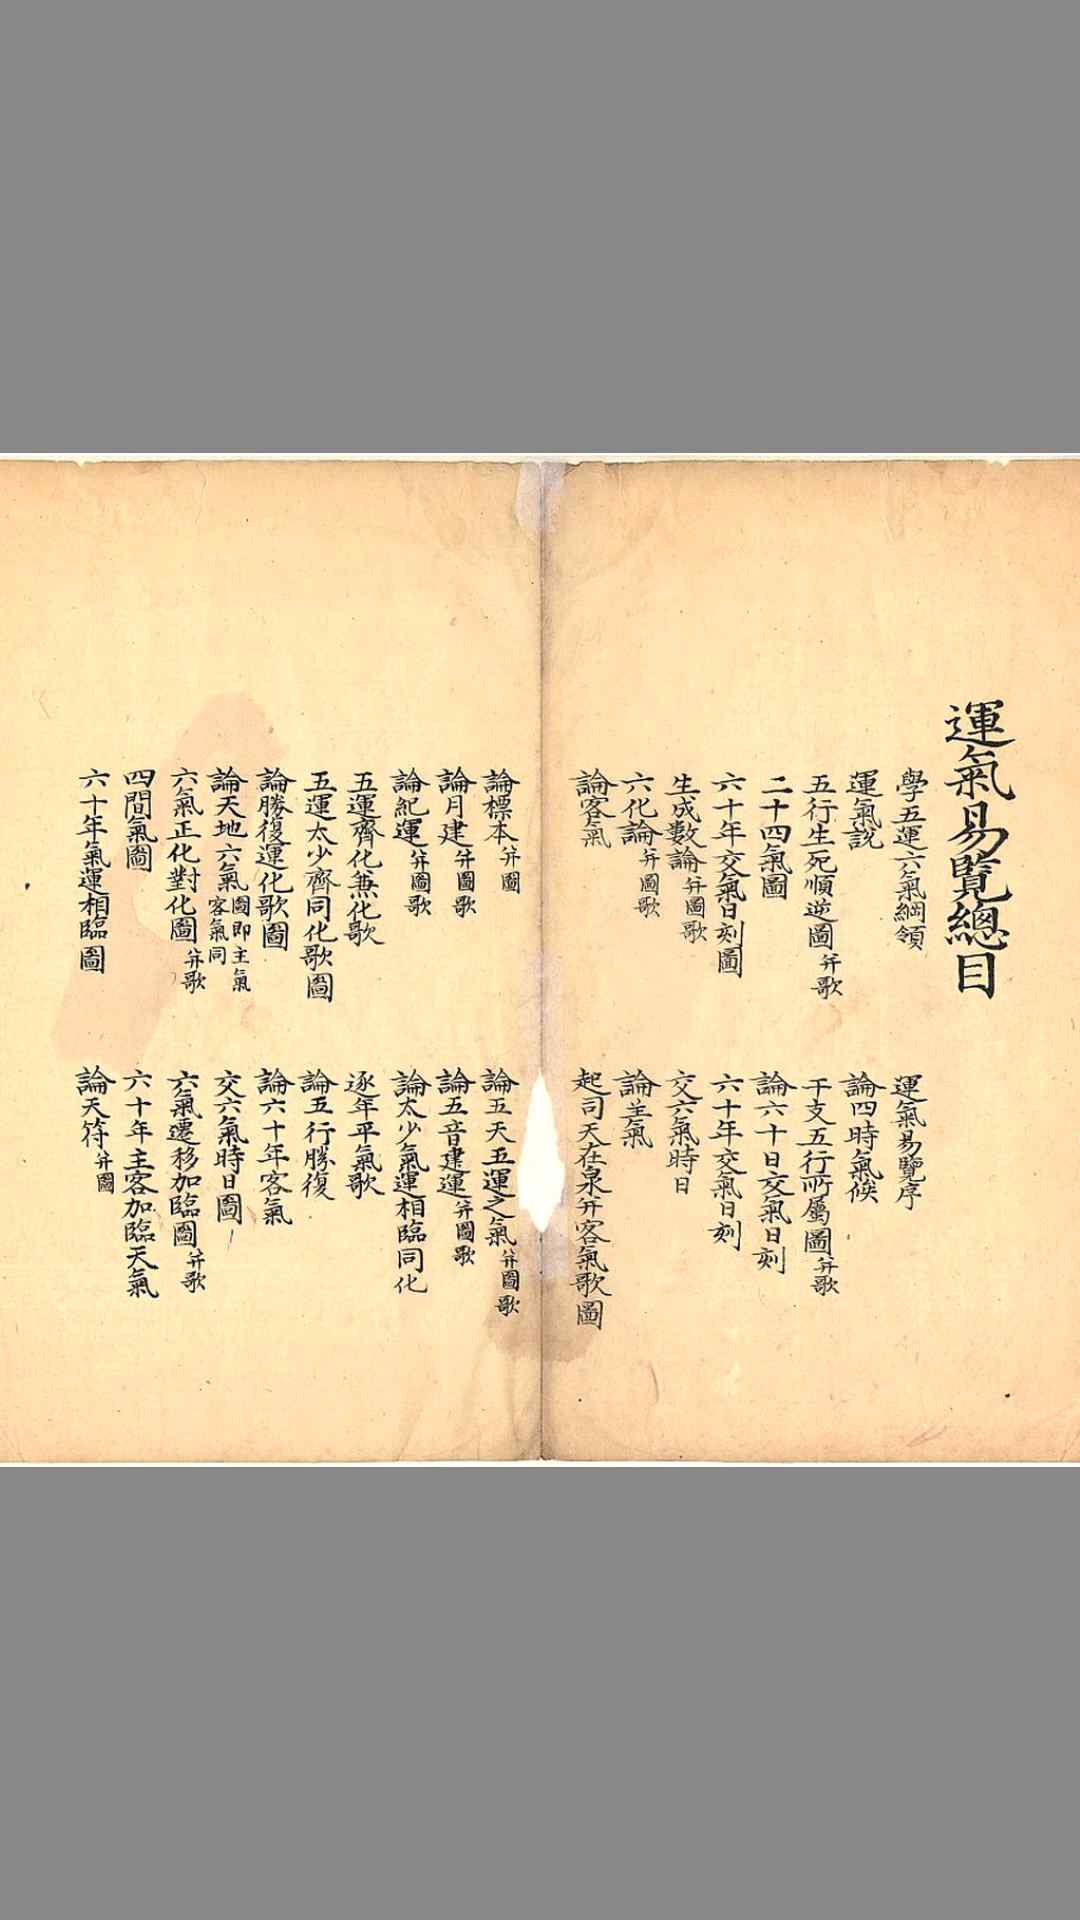 運氣易覽總目
學五運六氣綱領　運氣易覽序
運氣說　論四時氣候
五行生死順逆圖并歌　干支五行所屬圖并歌
二十四氣圖　論六十日交氣日刻
六十年交氣日刻圖　六十年交氣日刻
生成數論并圖歌　交六氣時日
六化論并圖歌　論主氣
論客氣　起司天在泉并客氣歌圖
論標本并圖　論五天五運之氣并圖歌
論月建并圖歌　論五音建運并圖歌
論紀運并圖歌　論太少氣運相臨同化
五運齊化兼化歌　逐年平氣歌
五運太少齊同化歌圖　論五行勝復
論勝復運化歌圖　論六十年客氣
論天地六氣圖即主氣客氣同　交六氣時日圖
六氣正化對化圖并歌　六氣遷移加臨圖并歌
四間氣圖　六十年主客加臨天氣
六十年氣運相臨圖　論天符并圖